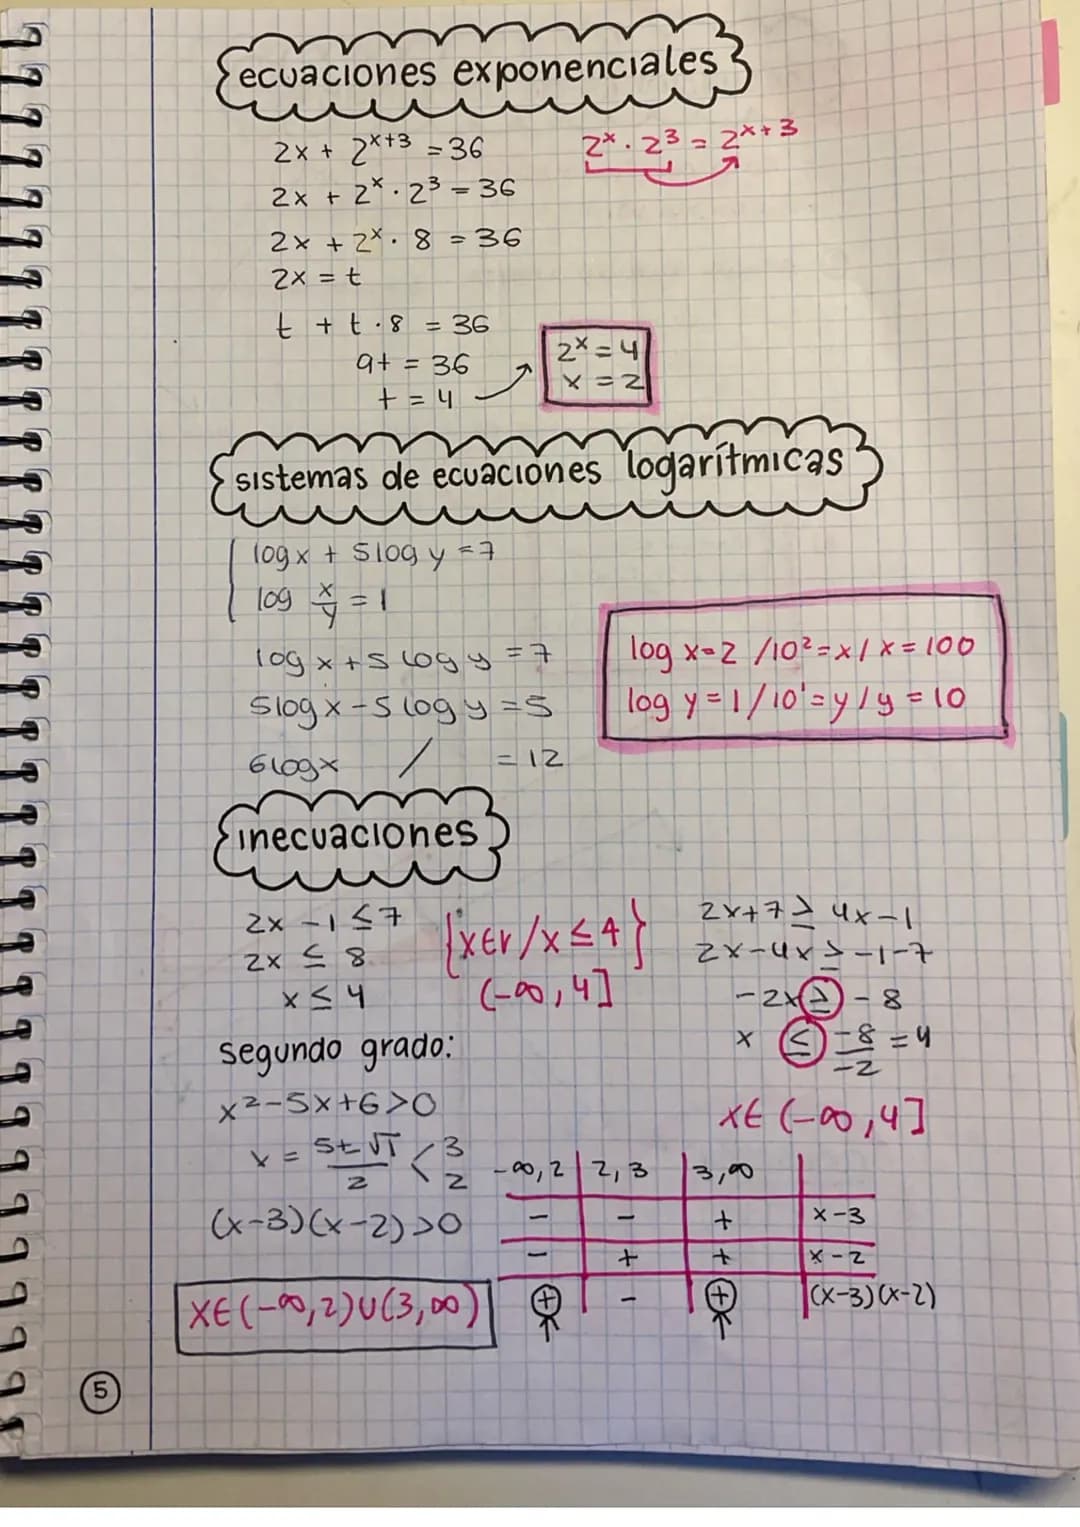 ecuaciones exponenciales
2x + 2ˣ⁺³ = 36
2ˣ · 2³ = 2ˣ⁺³
2x + 2ˣ · 2³ = 36
2x + 2ˣ · 8 = 36
2x = t
t + t · 8 = 36
9t = 36
t = 4
2ˣ = 4
x = 2
sistemas de ecuaciones logarítmicas
log x + 5 log y = 7
log x/y = 1
log x + 5 log y = 7
5 log x - 5 log y = 5
6 log x / = 12
log x = 2 / 10² = x / x = 100
log y = 1 / 10¹ = y / y = 10
inecuaciones
2x - 1 ≤ 7
2x ≤ 8
x ≤ 4
{x∈r / x ≤ 4}
(-∞, 4]
2x + 7 ≥ 4x - 1
2x - 4x ≥ -1 - 7
-2x ≥ -8
x ≤ -8/-2 = 4
x∈ (-∞, 4]
segundo grado:
x² - 5x + 6 > 0
x = 5 ± √1 / 2 < 3 2
(x-3)(x-2) > 0
x∈(-∞, 2)∪(3, ∞)
-∞, 2 | 2, 3 | 3, ∞ |
- | - | + | x - 3
- | + | + | x - 2
+ | - | + | (x-3)(x-2)
5